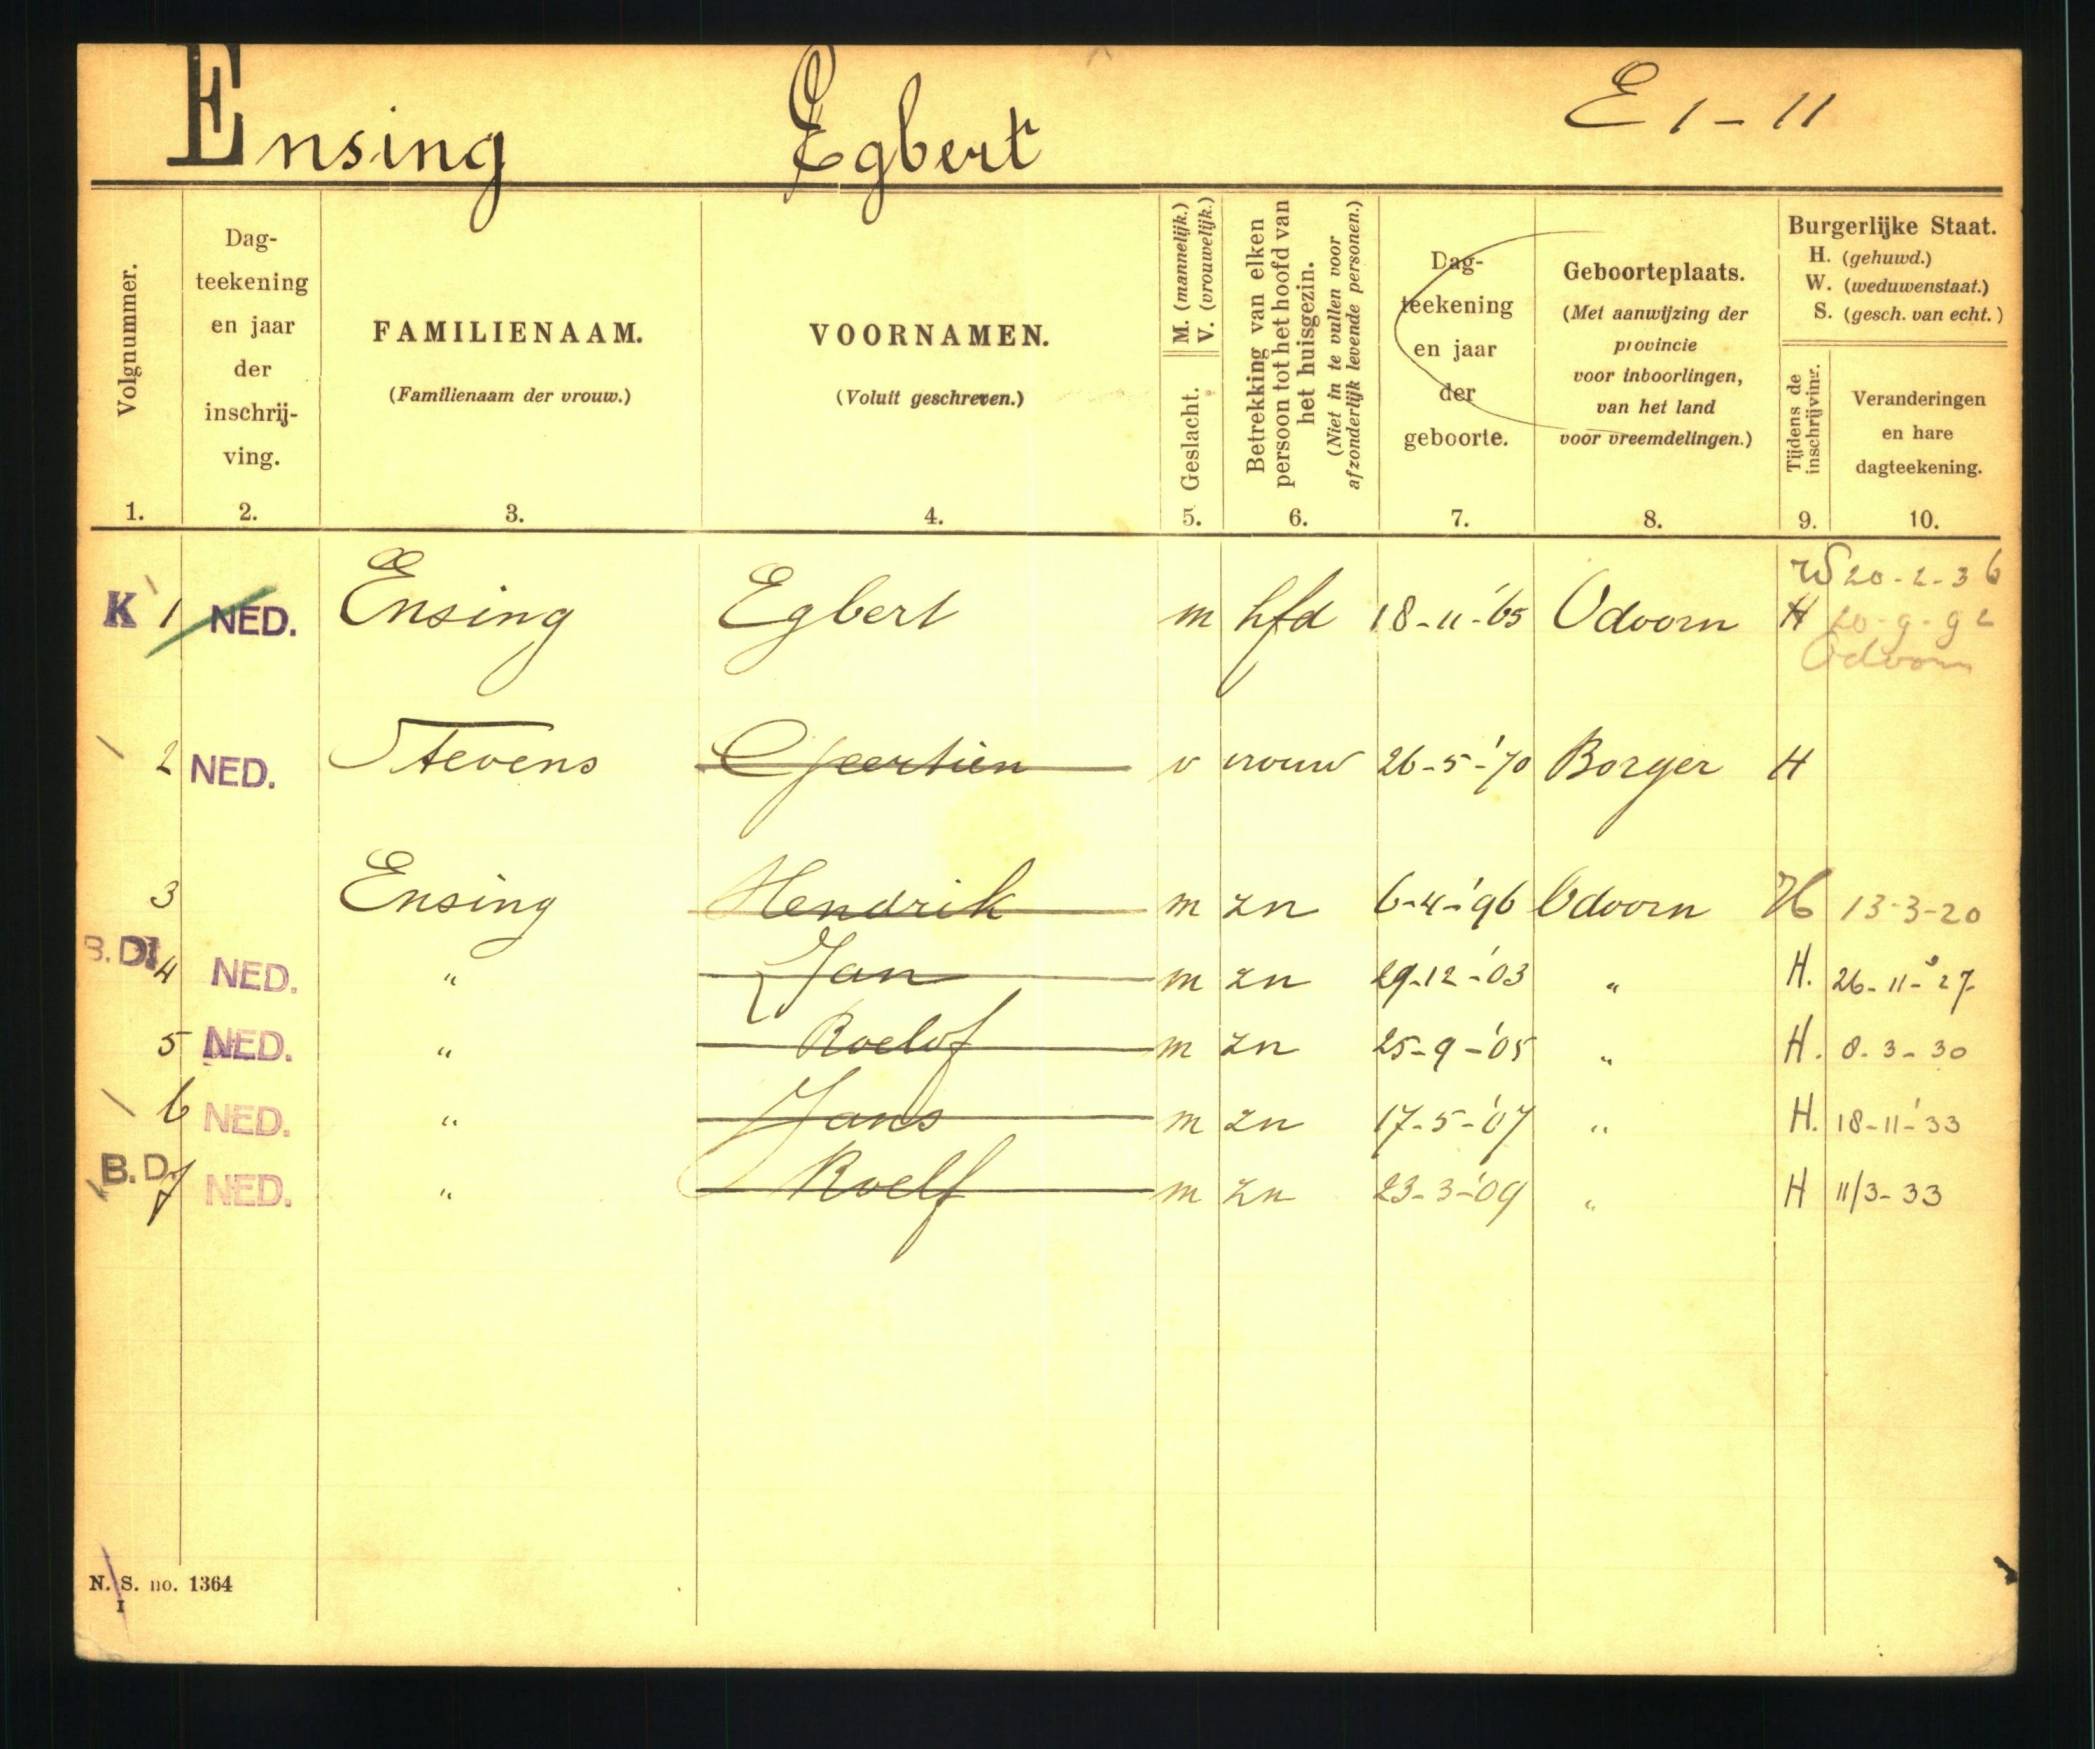 Ensing Egbert E 1 - 11
Volgnummer.
1.
Dag-
teekening
en jaar
der
inschrij-
ving.
2.
FAMILIENAAM.
(Familienaam der vrouw.)
3.
VOORNAMEN.
(Voluit geschreven.)
4.
M. (mannelijk.)
V. (vrouwelijk.)
Geslacht.
5.
Betrekking van elken
persoon tot het hoofd van
het huisgezin.
(Niet in te vullen voor
afzonderlijk levende personen.)
6.
Dag-
teekening
en jaar
der
geboorte.
7.
Geboorteplaats.
(Met aanwijzing der
provincie
voor inboorlingen,
van het land
voor vreemdelingen.)
8.
Burgerlijke Staat.
H. (gehuwd.)
W. (weduwenstaat.)
S. (gesch. van echt.)
Tijdens de
inschrijving.
9.
Veranderingen
en hare
dagteekening.
10.
W 20-2-36
K 1 NED. Ensing Egbert m hfd 18-11-'65 Odoorn H 20-9-92
Odoorn
2 NED. Stevens Geertien v vrouw 26-5-'70 Borger H
3 Ensing Hendrik m zn 6-4-'96 Odoorn H 13-3-20
B.D. 4 NED. " Jan m zn 29-12-'03 " H. 26-11-'27
5 NED. " Roelof m zn 25-9-'05 " H. 8-3-30
6 NED. " Jans m zn 17-5-'07 " H. 18-11-'33
B.D. 7 NED. " Roelf m zn 23-3-'09 " H 11/3-33
N. S. no. 1364
I